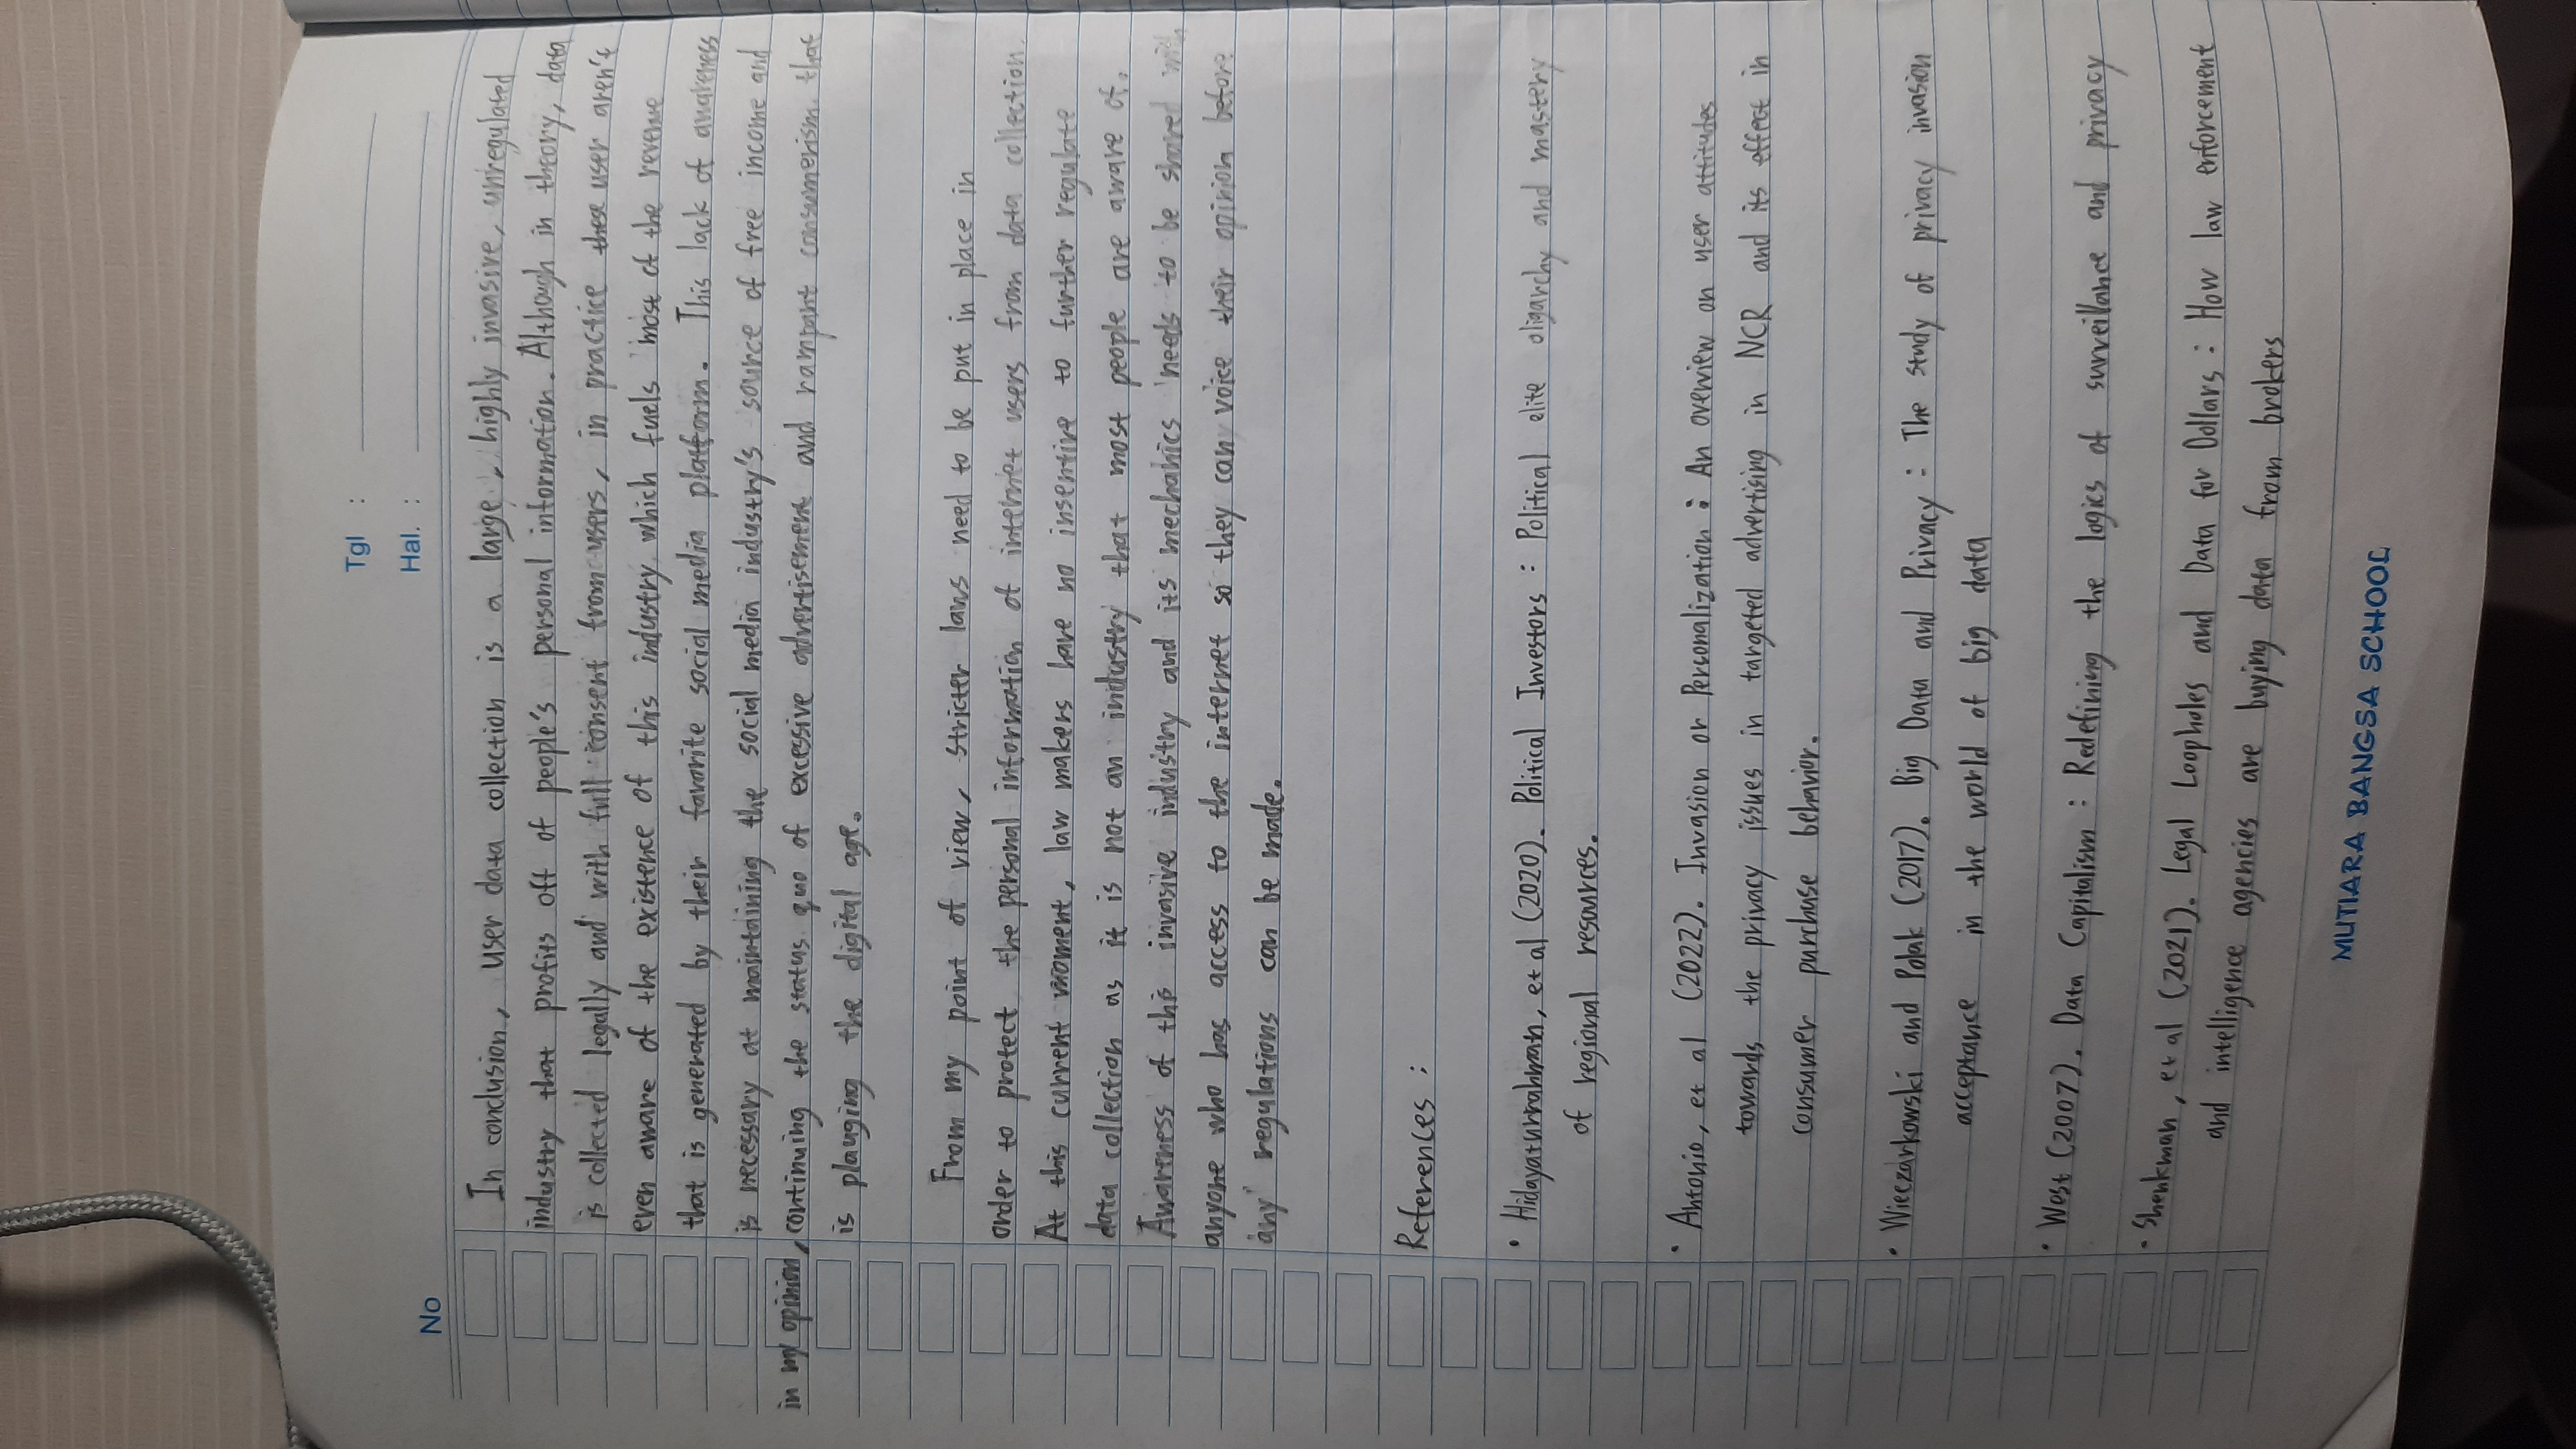 Tgl :
Hal. :
No
In conclusion, user data collection is a large, highly invasive, unregulated
industry that profits off of people's personal information. Although in theory, data
is collected legally and with full consent from users, in practice these user aren't
even aware of the existence of this industry which fuels most of the revenue
that is generated by their favorite social media platform. This lack of awareness
is necessary at maintaining the social media industry's source of free income and
in my opinion, continuing the status quo of excessive advertisement and rampant consumerism that
is plauging the digital age.
From my point of view, stricter laws need to be put in place in
order to protect the personal information of internet users from data collection.
At this current moment, law makers have no insentive to further regulate
data collection as it is not an industry that most people are aware of.
Awareness of this invasive industry and its mechanics needs to be shared with
anyone who has access to the internet so they can voice their opinion before
any regulations can be made.
References :
• Hidayaturrahman, et al (2020). Political Investors : Political elite oligarchy and mastery
of regional resources.
• Antonio, et al (2022). Invasion or Personalization : An overview on user attitudes
towards the privacy issues in targeted advertising in NCR and its effect in
consumer purchase behavior.
• Wieczarkowski and Polak (2017). Big Data and Privacy : The study of privacy invasion
acceptance in the world of big data
• West (2007). Data Capitalism : Redefining the logics of surveillance and privacy
• Shenkman, et al (2021). Legal Loopholes and Data for Dollars : How law enforcement
and intelligence agencies are buying data from brokers
MUTIARA BANGSA SCHOOL